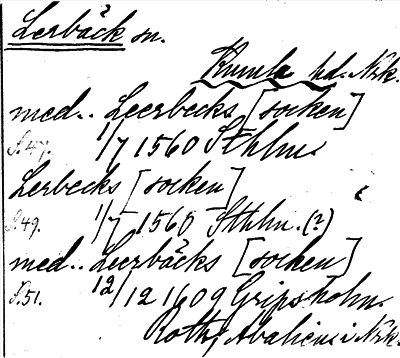 Lerbäck sn.
Kumla hd. Nrk.
med.. Leerbecks [socken]
S.47. 1/7 1560 Sthlm.
Lerbecks [socken]
S.49. 1/7 1560 Sthlm. (?)
med.. Leerbäcks [socken]
S.51. 12/12 1609 Gripsholm.
Roth, Avahiens i Nrk.